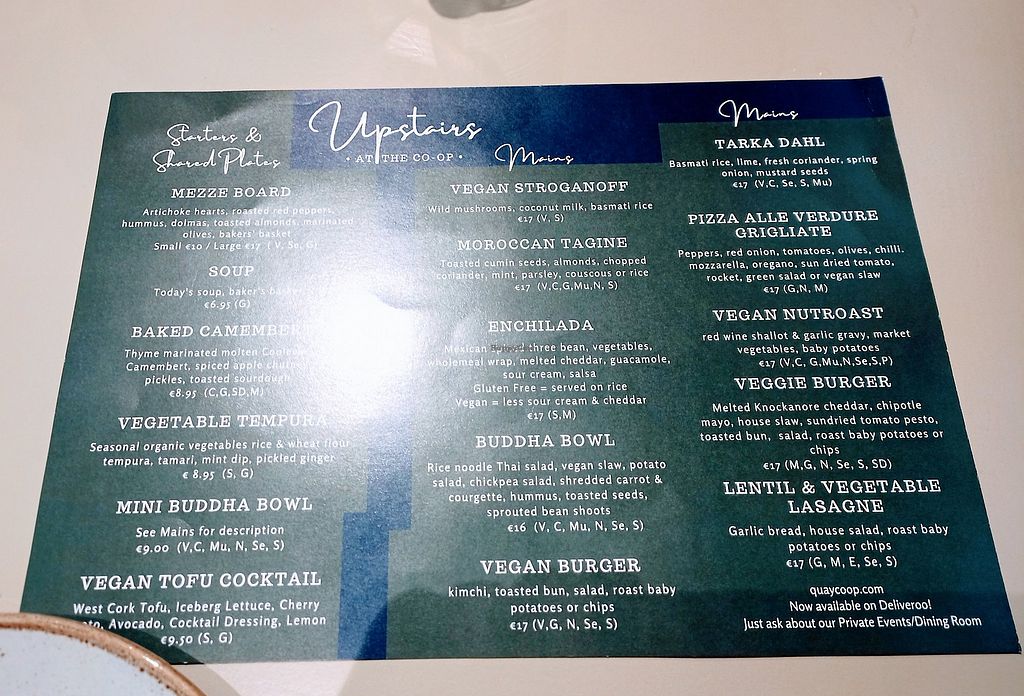 Starters &
Shared Plates
MEZZE BOARD
Artichoke hearts, roasted red peppers,
hummus, dolmas, toasted almonds, marinated
olives, bakers' basket
Small €10 / Large €17 ( V, Se, G)
SOUP
Today's soup, baker's basket
€6.95 (G)
BAKED CAMEMBERT
Thyme marinated molten
Camembert, spiced apple
pickles, toasted sourdough
€8.95 (C,G,SD,M)
VEGETABLE TEMPURA
Seasonal organic vegetables rice & wheat flour
tempura, tamari, mint dip, pickled ginger
€ 8.95 (S, G)
MINI BUDDHA BOWL
See Mains for description
€9.00 (V,C, Mu, N, Se, S)
VEGAN TOFU COCKTAIL
West Cork Tofu, Iceberg Lettuce, Cherry
Avocado, Cocktail Dressing, Lemon
€9.50 (S, G)
Upstairs
• AT THE CO-OP •
Mains
VEGAN STROGANOFF
Wild mushrooms, coconut milk, basmati rice
€17 (V, S)
MOROCCAN TAGINE
Toasted cumin seeds, almonds, chopped
coriander, mint, parsley, couscous or rice
€17 (V,C,G,Mu,N, S)
ENCHILADA
Mexican three bean, vegetables,
wholemeal wrap, melted cheddar, guacamole,
sour cream, salsa
Gluten Free = served on rice
Vegan = less sour cream & cheddar
€17 (S,M)
BUDDHA BOWL
Rice noodle Thai salad, vegan slaw, potato
salad, chickpea salad, shredded carrot &
courgette, hummus, toasted seeds,
sprouted bean shoots
€16 (V, C, Mu, N, Se, S)
VEGAN BURGER
kimchi, toasted bun, salad, roast baby
potatoes or chips
€17 (V,G, N, Se, S)
Mains
TARKA DAHL
Basmati rice, lime, fresh coriander, spring
onion, mustard seeds
€17 (V,C, Se, S, Mu)
PIZZA ALLE VERDURE
GRIGLIATE
Peppers, red onion, tomatoes, olives, chilli.
mozzarella, oregano, sun dried tomato,
rocket, green salad or vegan slaw
€17 (G,N, M)
VEGAN NUTROAST
red wine shallot & garlic gravy, market
vegetables, baby potatoes
€17 (V,C, G,Mu,N,Se,S,P)
VEGGIE BURGER
Melted Knockanore cheddar, chipotle
mayo, house slaw, sundried tomato pesto,
toasted bun, salad, roast baby potatoes or
chips
€17 (M,G, N, Se, S, SD)
LENTIL & VEGETABLE
LASAGNE
Garlic bread, house salad, roast baby
potatoes or chips
€17 (G, M, E, Se, S)
quaycoop.com
Now available on Deliveroo!
Just ask about our Private Events/Dining Room